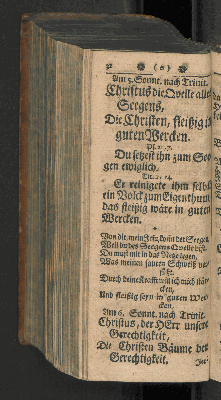 ( 0 )
Am 5. Sonnt. nach Trinit.
Christus die Qvelle alle
Seegens,
Die Christen, fleißig i
guten Wercken.
Du setzest ihn zum See
gen ewiglich.
Er reinigete ihm selbst
ein Volck zum Eigenthum
das fleißig wäre in guten
Wercken.
Von dir, mein Jesu, komt der Seegen
Weil du des Seegens Qvelle bist.
Du must mit in das Netze legen,
Was meinen sauren Schweiß
süßt.
Durch deine Krafft will ich mich stär-
cken,
Und fleißig seyn in guten Wer-
cken.
Am 6. Sonnt. nach Trinit.
Christus, der HErr unsere
Gerechtigkeit,
Die Christen Bäume der
Gerechtigkeit.